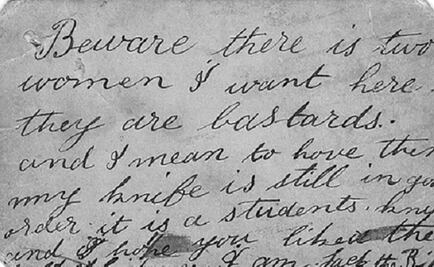 Beware there is two
women I want here
they are bastards.
and I mean to hove them
my knife is still in go
order it is a students kn
and I hope you liked the
I am Jack the Ri